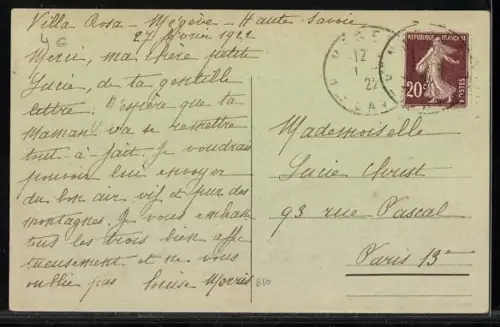 Villa Rosa - Megève - Haute Savoie
27 février 1922
Merci, ma chère petite
Lucie, de ta gentille
lettre. J'espère que ta
Maman va se remettre
tout à fait. Je voudrais
pouvoir lui envoyer
du bon air vif et pur des
montagnes. Je vous embrasse
tous les trois bien affec
tueusement et ne vous
oublie pas Louise Morris
REPUBLIQUE FRANÇAISE
20c
POSTES
12
22
Mademoiselle
Lucie
93 rue Pascal
Paris 13e
810